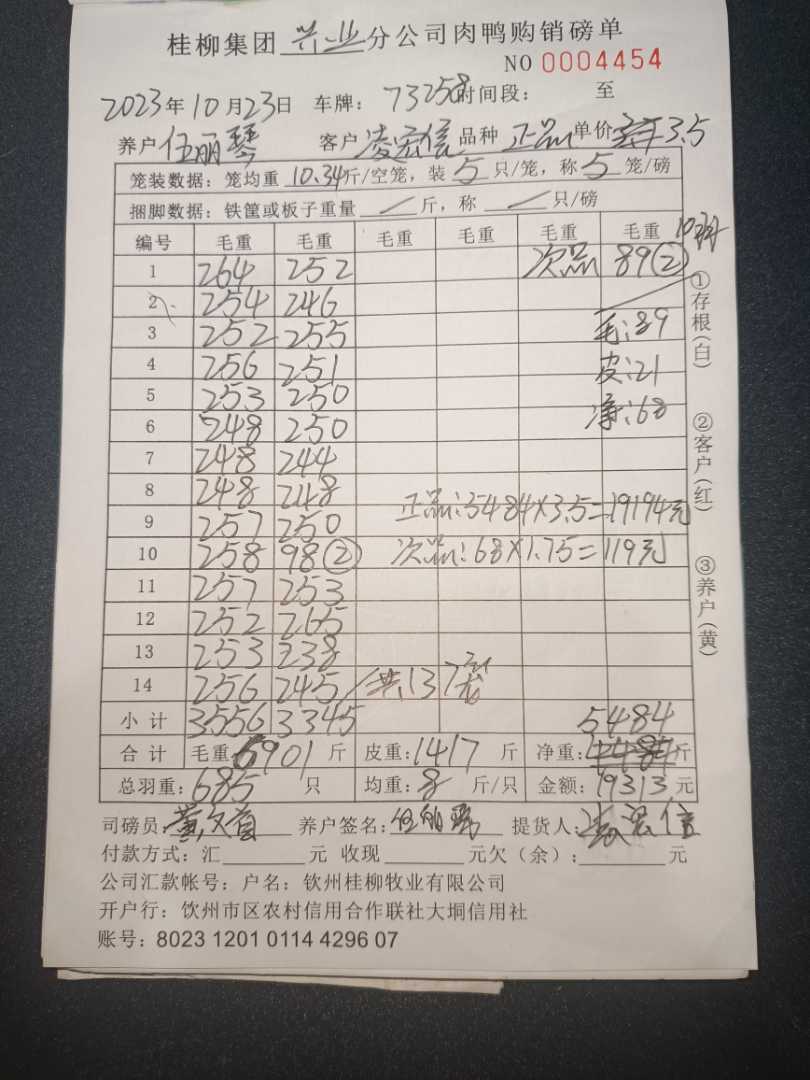 桂柳集团 兴业 分公司肉鸭购销磅单
NO 0004454
2023年10月23日 车牌：73258 时间段： 至
养户 伍丽琴 客户 凌宏信 品种 正品 单价 3.5
笼装数据：笼均重 10.34 斤/空笼，装 5 只/笼，称 5 笼/磅
捆脚数据：铁筐或板子重量 / 斤，称 / 只/磅
编号 毛重 毛重 毛重 毛重 毛重 毛重
1 264 252 次品 89②
2 254 246
3 252 255 毛：89
4 256 251 皮：21
5 253 250 净：68
6 248 250
7 248 244
8 248 248
正品：5484×3.5=19194元
9 257 250
10 258 98② 次品：68×1.75=119元
11 257 253
12 252 265
13 253 238
14 256 245 共137
小计 3556 3345 5484
合计 毛重：6901 斤 皮重：1417 斤 净重： 斤
总羽重：685 只 均重：8 斤/只 金额：19313 元
司磅员 养户签名：伍丽琴 提货人：凌宏信
付款方式：汇 元 收现 元欠（余）： 元
公司汇款帐号：户名：钦州桂柳牧业有限公司
开户行：饮州市区农村信用合作联社大垌信用社
账号：8023 1201 0114 4296 07
①存根（白）
②客户（红）
③养户（黄）